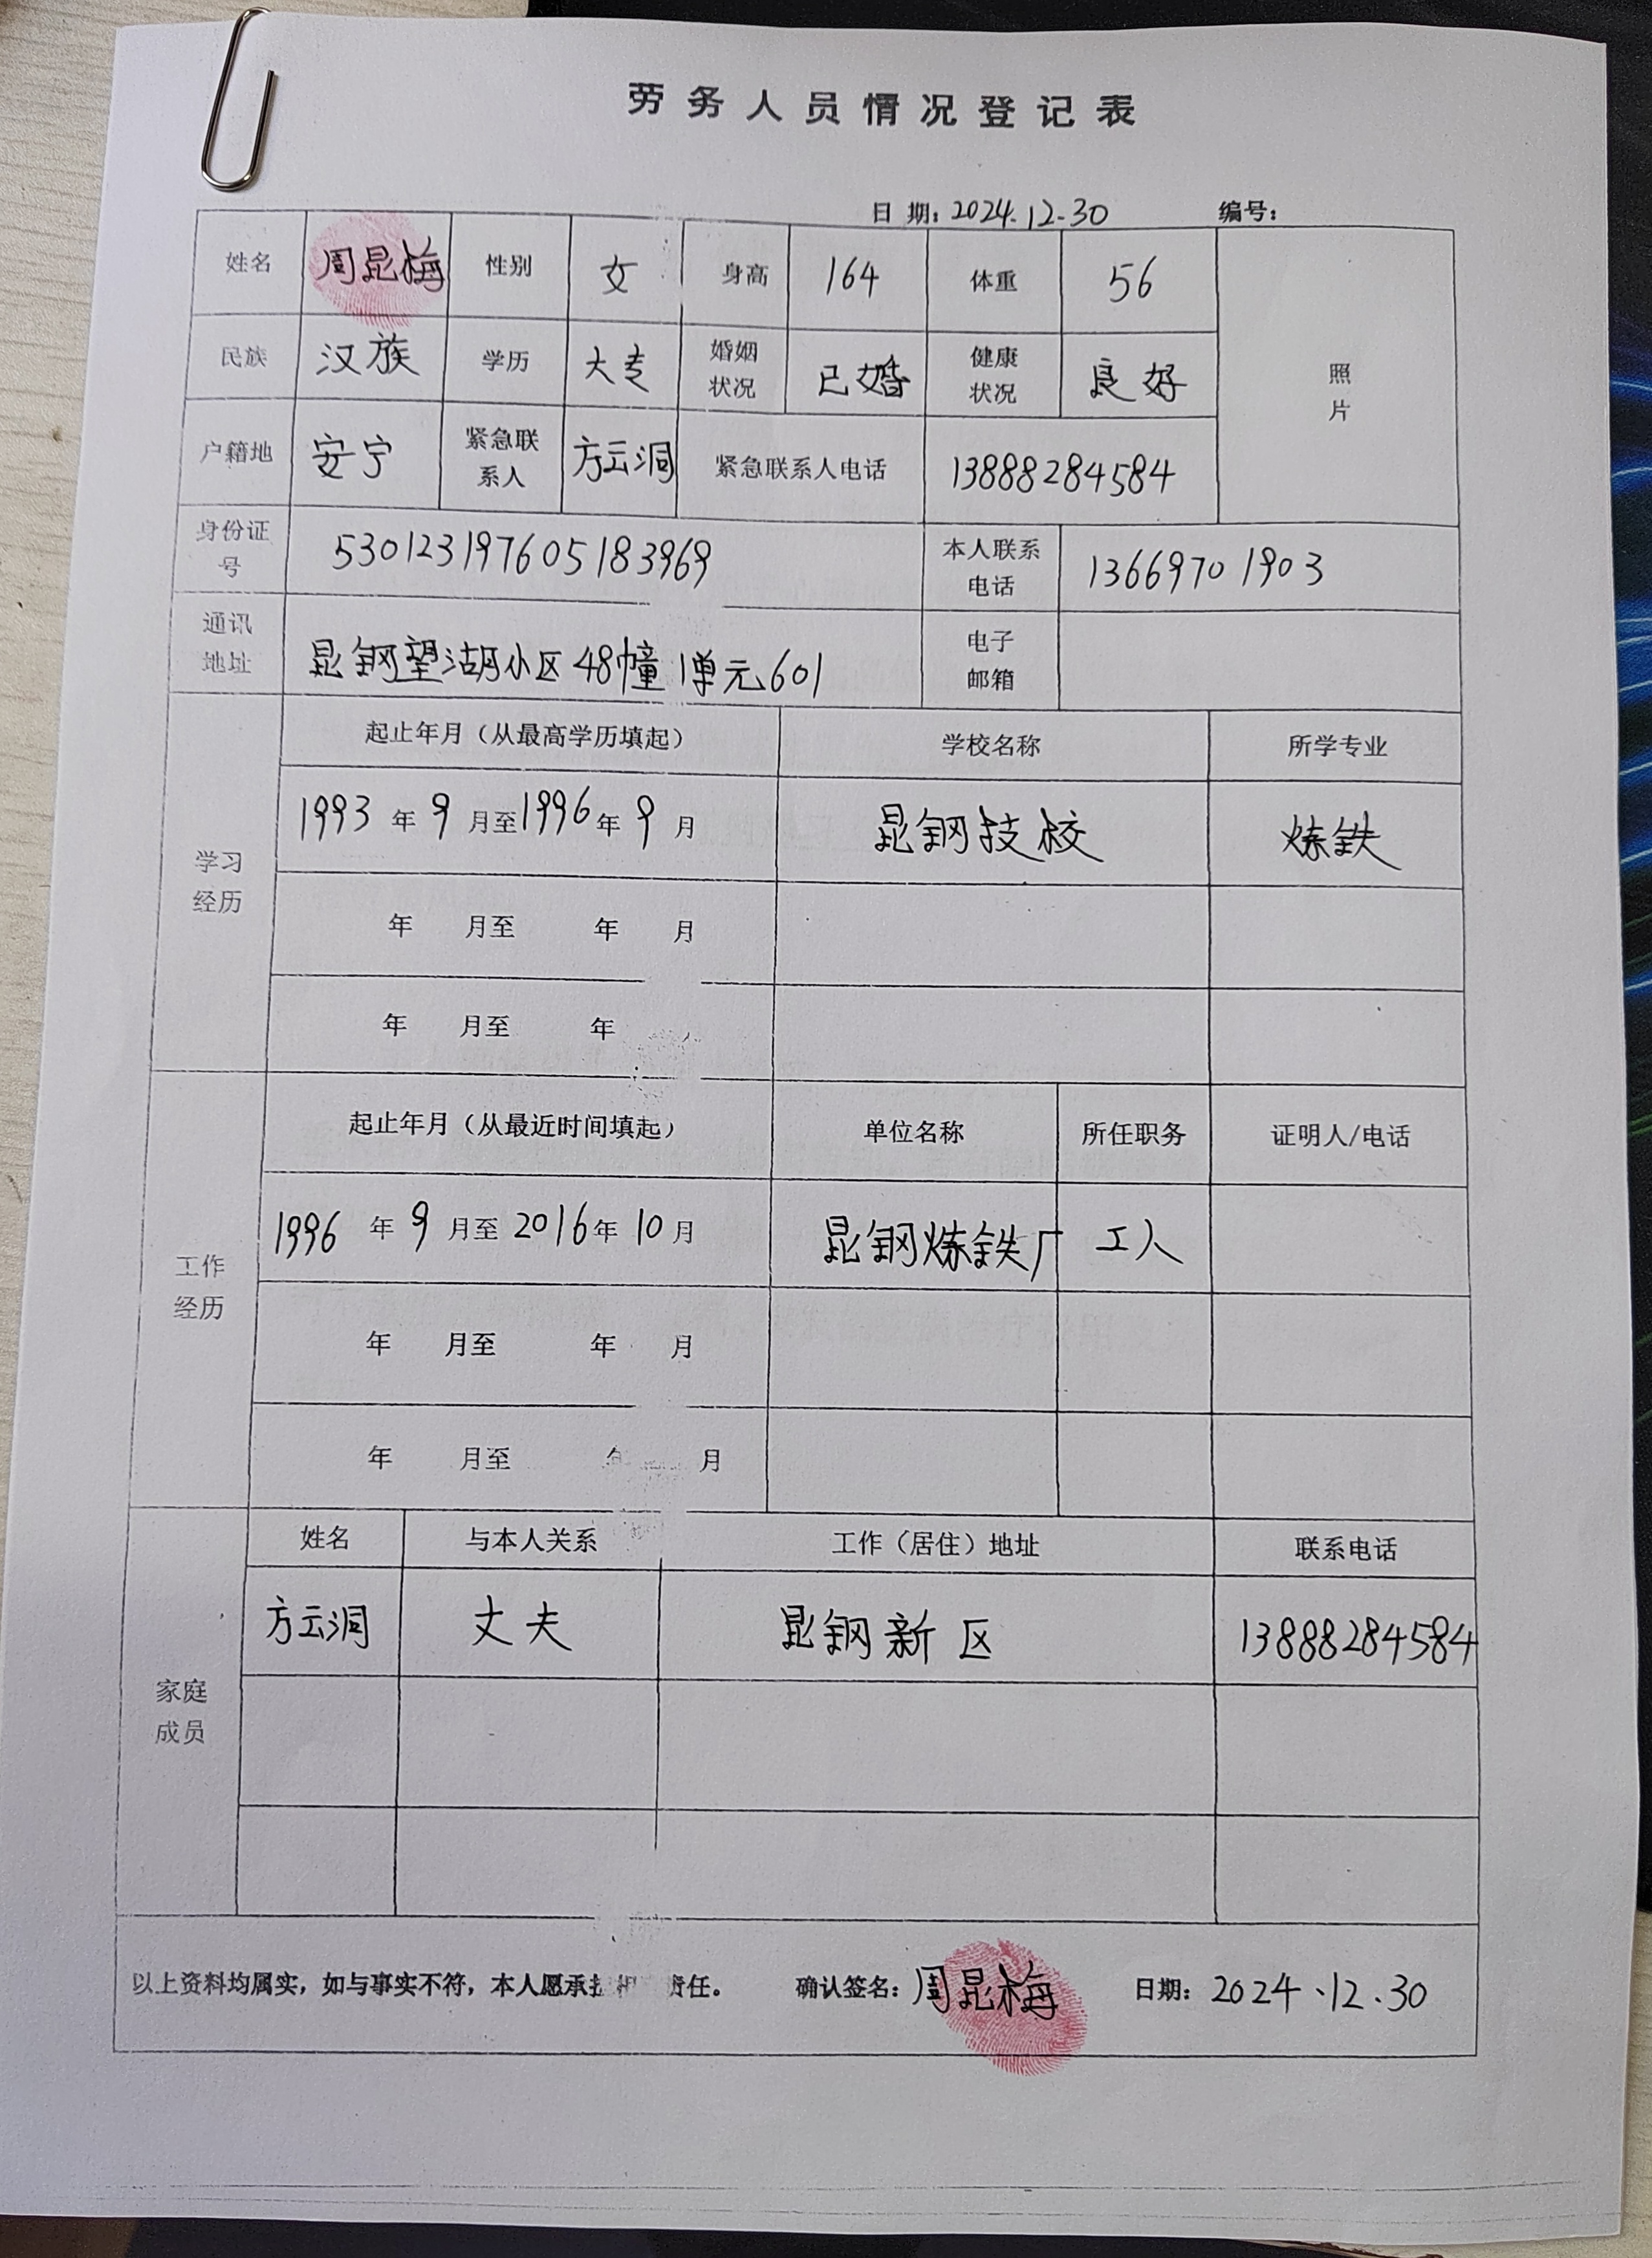 劳务人员情况登记表
日 期：2024.12.30 编号：
姓名 周昆梅 性别 女 身高 164 体重 56 照片
民族 汉族 学历 大专 婚姻状况 已婚 健康状况 良好
户籍地 安宁 紧急联系人 方云洞 紧急联系人电话 13888284584
身份证号 530123197605183969 本人联系电话 13669701903
通讯地址 昆钢望湖小区48幢1单元601 电子邮箱
学习经历
起止年月（从最高学历填起） 学校名称 所学专业
1993年9月至1996年9月 昆钢技校 炼铁
年 月至 年 月
年 月至 年
工作经历
起止年月（从最近时间填起） 单位名称 所任职务 证明人/电话
1996年9月至2016年10月 昆钢炼铁厂 工人
年 月至 年 月
年 月至 年 月
家庭成员
姓名 与本人关系 工作（居住）地址 联系电话
方云洞 丈夫 昆钢新区 13888284584
以上资料均属实，如与事实不符，本人愿承担相 责任。 确认签名：周昆梅 日期：2024.12.30